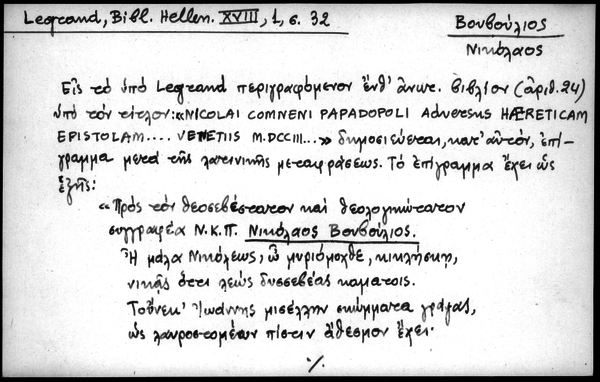 Legrand, Bibl. Hellen. XVIII, 1, σ. 32
Βουβούλιος
Νικόλαος
Εἰς τὸ ὑπὸ Legrand περιγραφόμενον ἐνθ' ἀνωτ. βιβλίον (ἀριθ. 24)
ὑπὸ τὸν τίτλον: «NICOLAI COMNENI PAPADOPOLI Adversus HÆRETICAM
EPISTOLAM.... VENETIIS M.DCCIII...» δημοσιεύεται, κατ' αὐτόν, ἐπί-
γραμμα μετὰ τῆς λατινικῆς μεταφράσεως. Τὸ ἐπίγραμμα ἔχει ὡς
ἑξῆς:
«Πρὸς τὸν θεοσεβέστατον καὶ θεολογικώτατον
συγγραφέα Ν.Κ.Π. Νικόλαος Βουβούλιος.
Ἦ μάλα Νικόλεως, ὦ μυριόμοχθε, κικλήσκῃ,
νικᾷς ὅττι λεὼς δυσσεβέας καμάτοις.
Τοὔνεκ' Ἰωάννης μισέλλην σκώμματα γράψας,
ὡς λαυροστομέων πίστιν ἄθεσμον ἔχει.
·/.